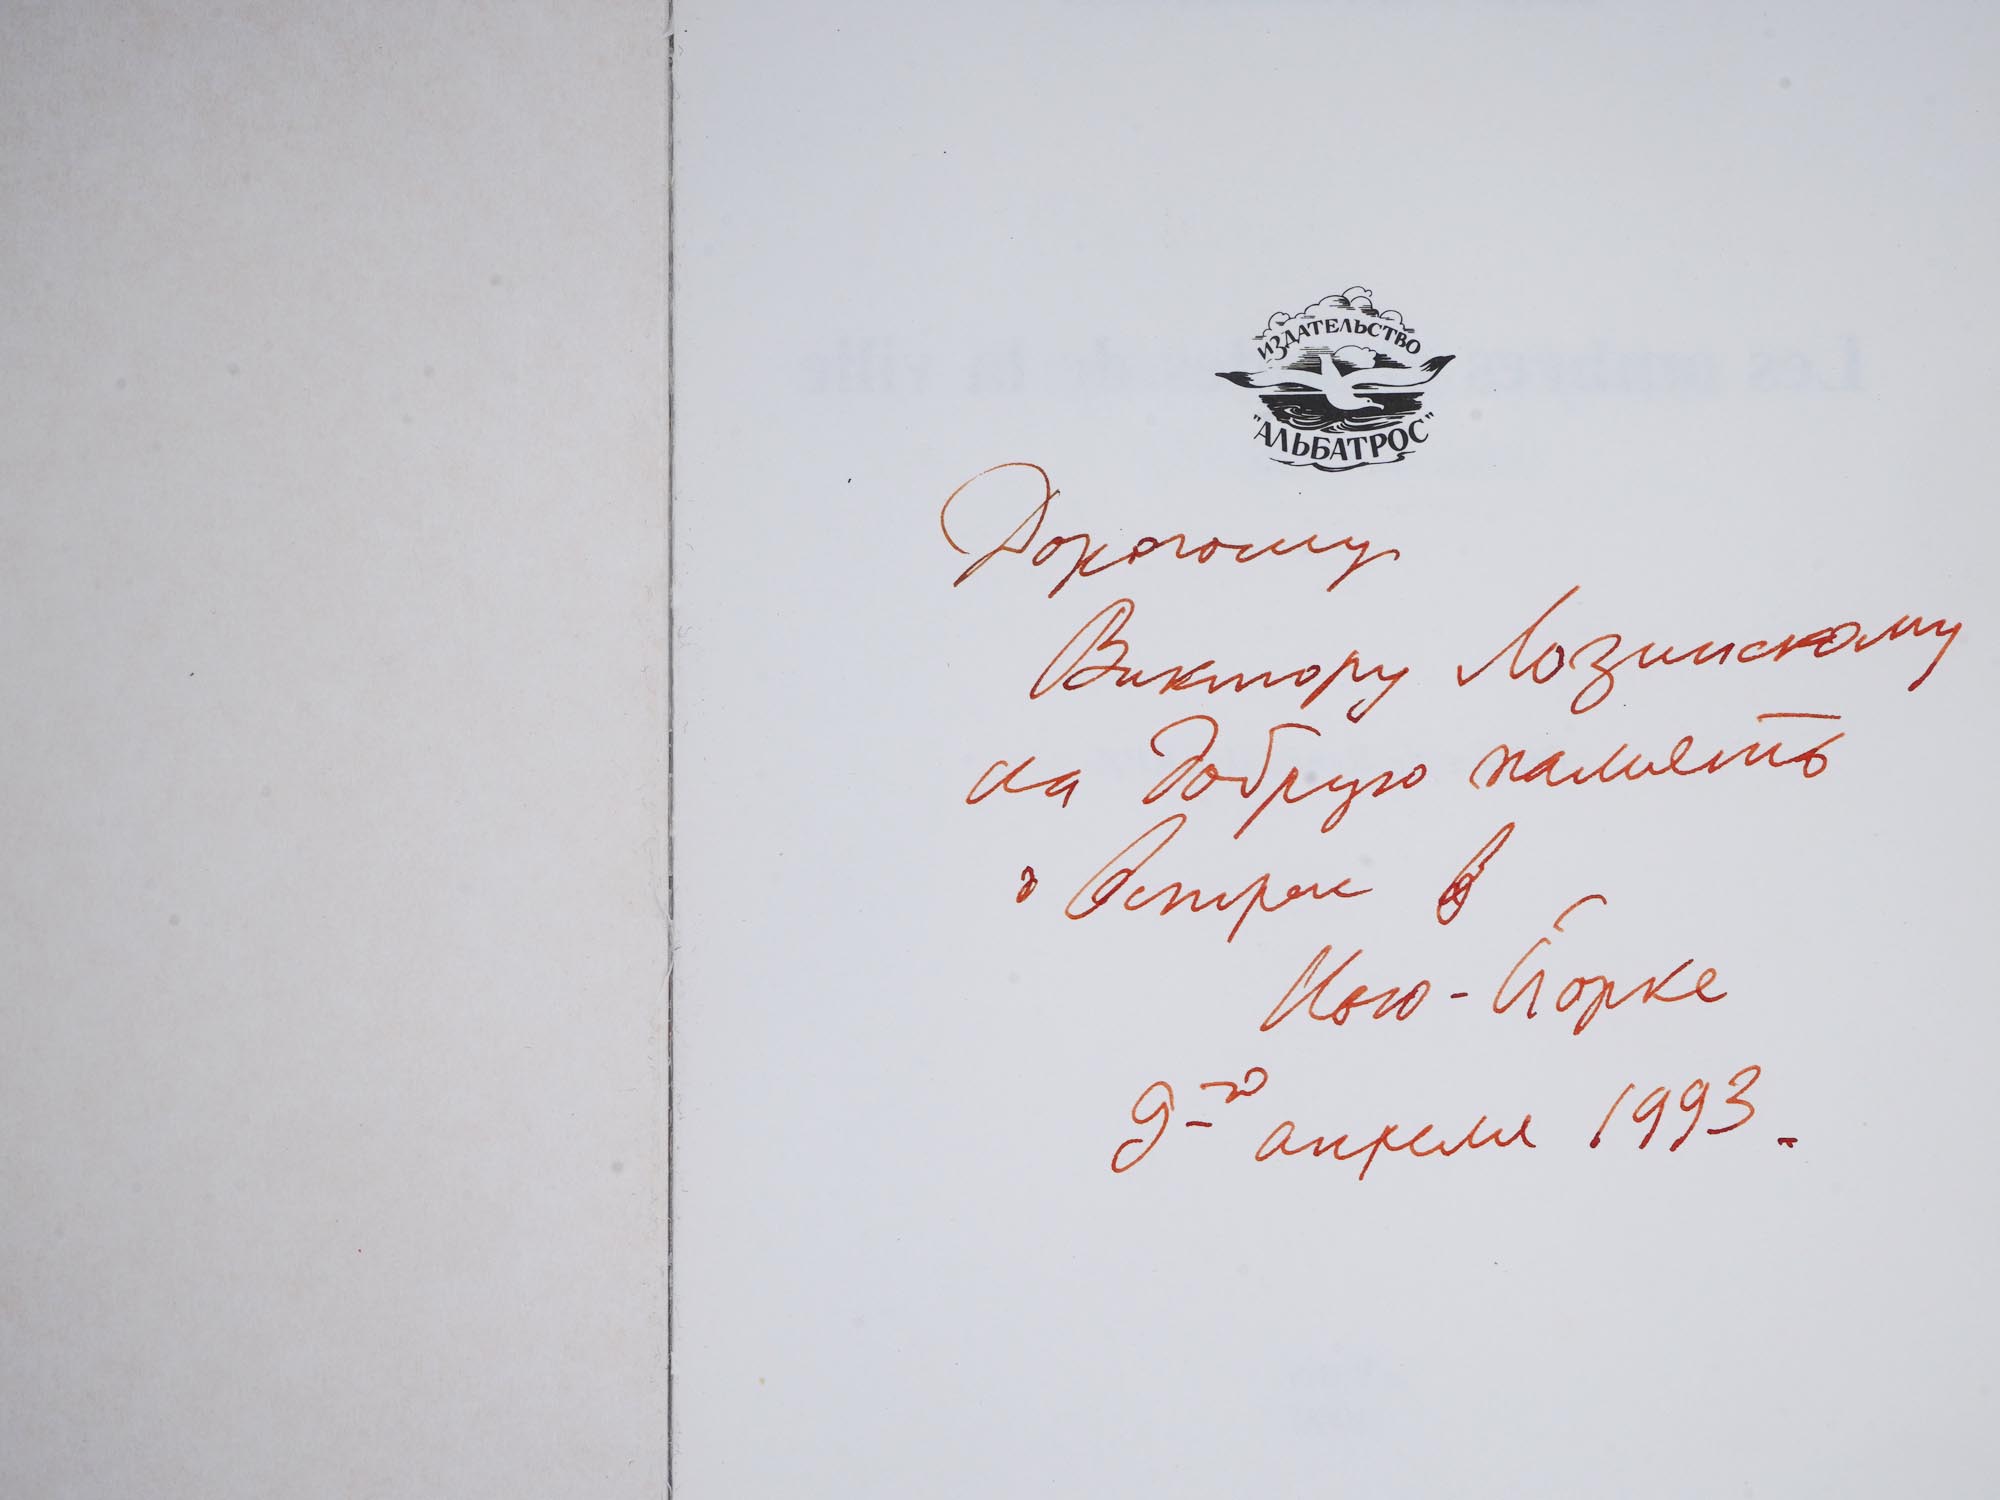 ИЗДАТЕЛЬСТВО
"АЛЬБАТРОС"
Дорогому
Виктору Лозинскому
на добрую память
о встрече в
Нью-Йорке
9-го апреля 1993.